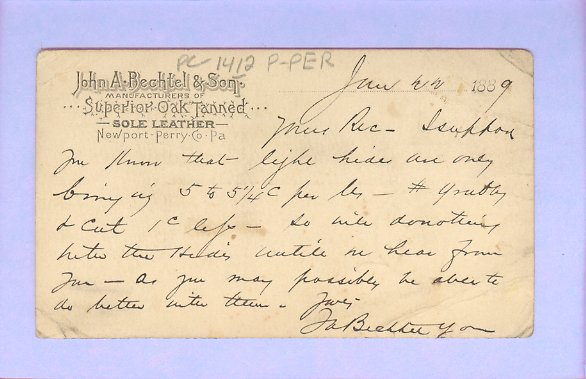 PC-1412 P-PER
John A. Bechtel & Son.
MANUFACTURERS OF
Superior Oak Tanned
SOLE LEATHER
Newport Perry Co. Pa
Jan 22 1889
Yours Rec - I suppose
you know that light hides are only
bringing 5 to 5 1/4c per lb - # Grubby
& Cut 1c less - so will do nothing
with the Hides untill we hear from
you - as you may possibly be able to
do better with them - Yours
Jno A Bechtel & Son